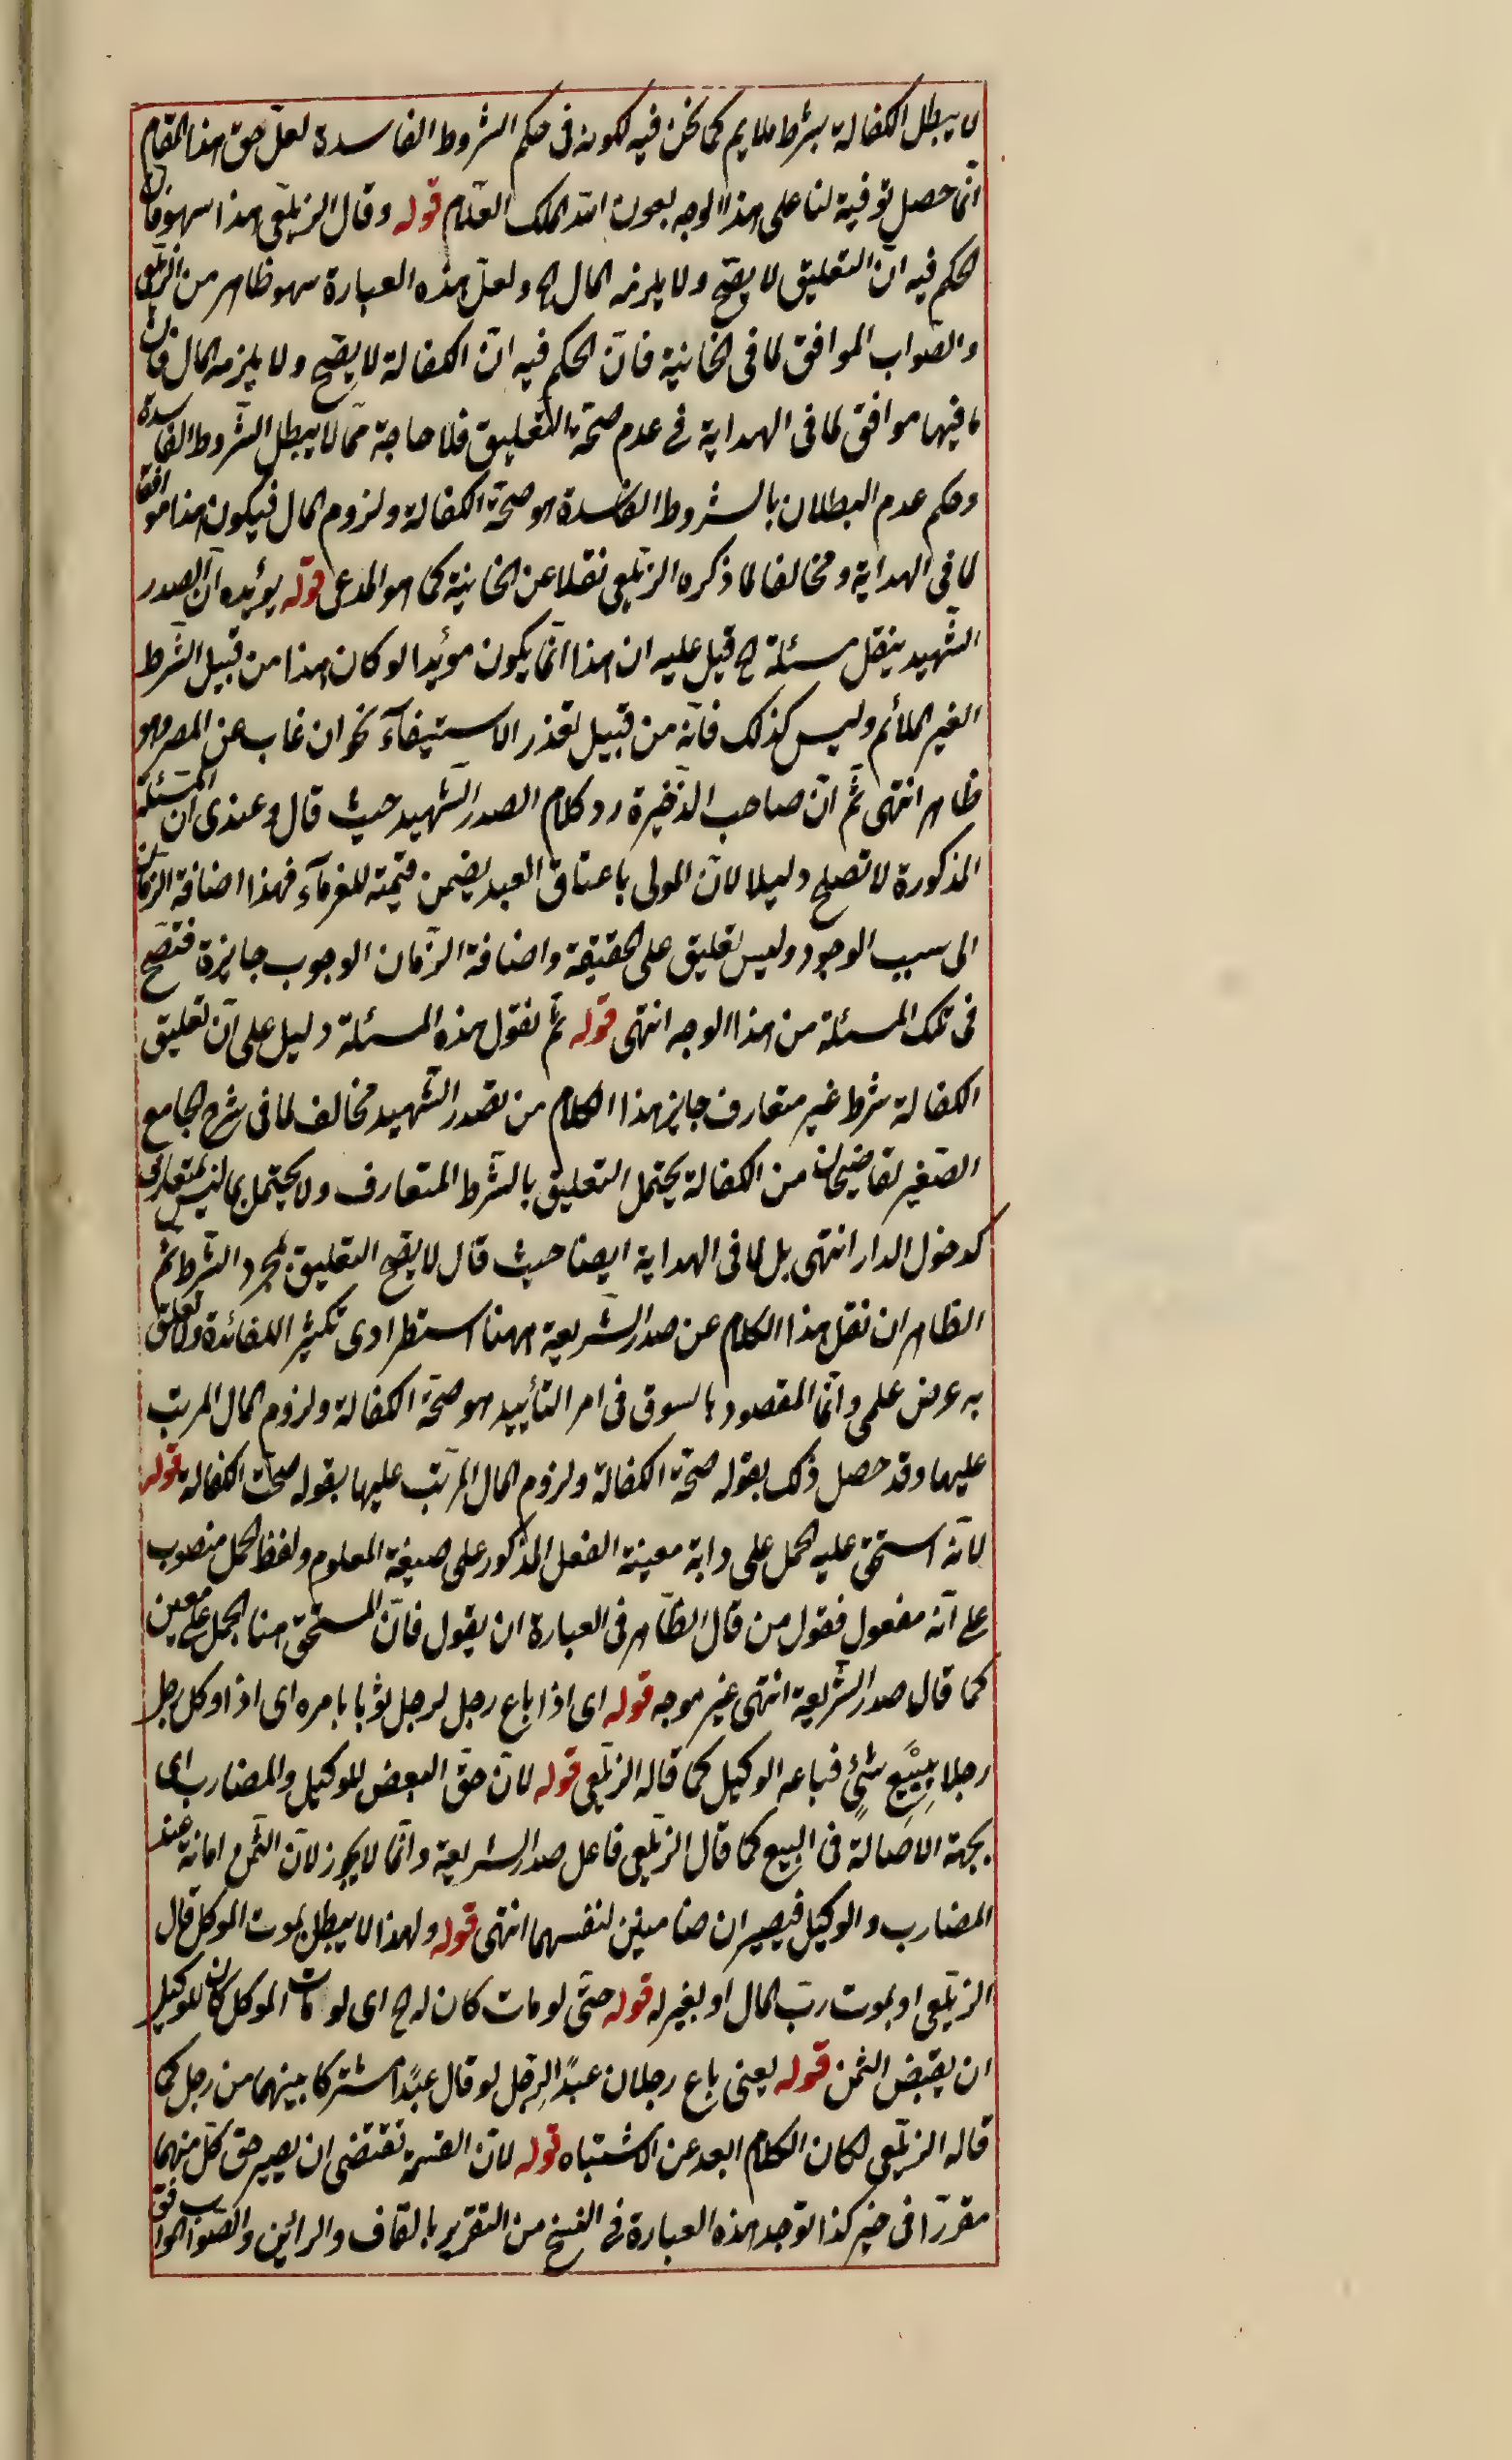 لا يبطل الكفالة بشرط ملايم كما نحن فيه لكونه فى حكم الشروط الفاسدة لعل حق هذا المقام
انما حصل توفية لنا على هذا الوجه بعون الله الملك العلام قوله وقال الزيلعى هذا سهو فان
الحكم فيه ان التعليق لا يصح ولا يلزمه المال الخ ولعل هذه العبارة سهو ظاهر من الزيلعى
والصواب الموافق لما فى الخانية فان الحكم فيه ان الكفالة لا يصح ولا يلزمه المال فان
ما فيها موافق لما فى الهداية فى عدم صحة التعليق فلا حاجة مما لا يبطل الشروط الفاسدة
وحكم عدم البطلان بالشروط الفاسدة هو صحة الكفالة ولزوم المال فيكون هذا موافقا
لما فى الهداية ومخالفا لما ذكره الزيلعى نقلا عن الخانية كما هو المدعى قوله يؤيده ان الصدر
الشهيد ينقل مسئلة الخ قيل عليه ان هذا انما يكون مؤيدا لو كان هذا من قبيل الشرط
الغير الملائم وليس كذلك فانه من قبيل تعذر الاستيفاء نحو ان غاب عن المصر وهو
ظاهر انتهى ثم ان صاحب الذخيرة رد كلام الصدر الشهيد حيث قال وعندى ان المسئلة
المذكورة لا تصلح دليلا لان المولى باعتاق العبد يضمن قيمته للغرماء فهذا اضافة الزمان
الى سبب الوجود وليس تعليق على الحقيقة واضافة الزمان الوجوب جايزة فتصح
فى تلك المسئلة من هذا الوجه انتهى قوله ثم نقول هذه المسئلة دليل على ان تعليق
الكفالة شرط غير متعارف جايز هذا الكلام من تصدر الشهيد مخالف لما فى شرح الجامع
الصغير لقاضيخان من الكفالة يحتمل التعليق بالشرط المتعارف ولا يحتمل بما ليس بمتعارف
كدخول الدار انتهى بل لما فى الهداية ايضا حيث قال لا يصح التعليق بمجرد الشرط ثم
الظاهر ان نقل هذا الكلام عن صدر الشريعة ههنا استطرادى تكثير الفائدة ولا تعلق
به عرض علمى وانما المقصود بالسوق فى امر التأييد هو صحة الكفالة ولزوم المال المرتب
عليها وقد حصل ذلك بقوله صحة الكفالة ولزوم المال المرتب عليها بقوله صحت الكفالة قوله
لانه استحق عليه الحمل على دابة معينة الفعل المذكور على صيغة المعلوم ولفظ الحمل منصوب
على انه مفعول فقول من قال الظاهر فى العبارة ان يقول فان المستحق هنا الحمل على معين
كما قال صدر الشريعة انتهى غير موجه قوله اى اذا باع رجل لرجل ثوبا بامره اى اذا وكل رجل
رجلا ببيع شئ فباعه الوكيل كما قاله الزيلعى قوله لان حق البعض للوكيل والمضارب اى
بجهة الاصالة فى البيع كما قال الزيلعى فاعل صدر الشريعة وانما لا يجوز لان الثمن امانة عند
المضارب والوكيل فيصيران ضامنين لنفسهما انتهى قوله ولهذا لا يبطل بموت الموكل قال
الزيلعى او بموت رب المال او بغيره قوله حتى لو مات كان له الخ اى لو مات الموكل كان للوكيل
ان يقبض الثمن قوله يعنى باع رجلان عبدا لرجل لو قال عبدا مشتركا بينهما من رجل كما
قاله الزيلعى لكان الكلام ابعد عن الاشتباه قوله لان القسمة تقتضى ان يصير حق كل منهما
مقررا فى حيز كذا توجد هذه العبارة فى النسخ من التقرير بالقاف والرائين والصواب الموافق